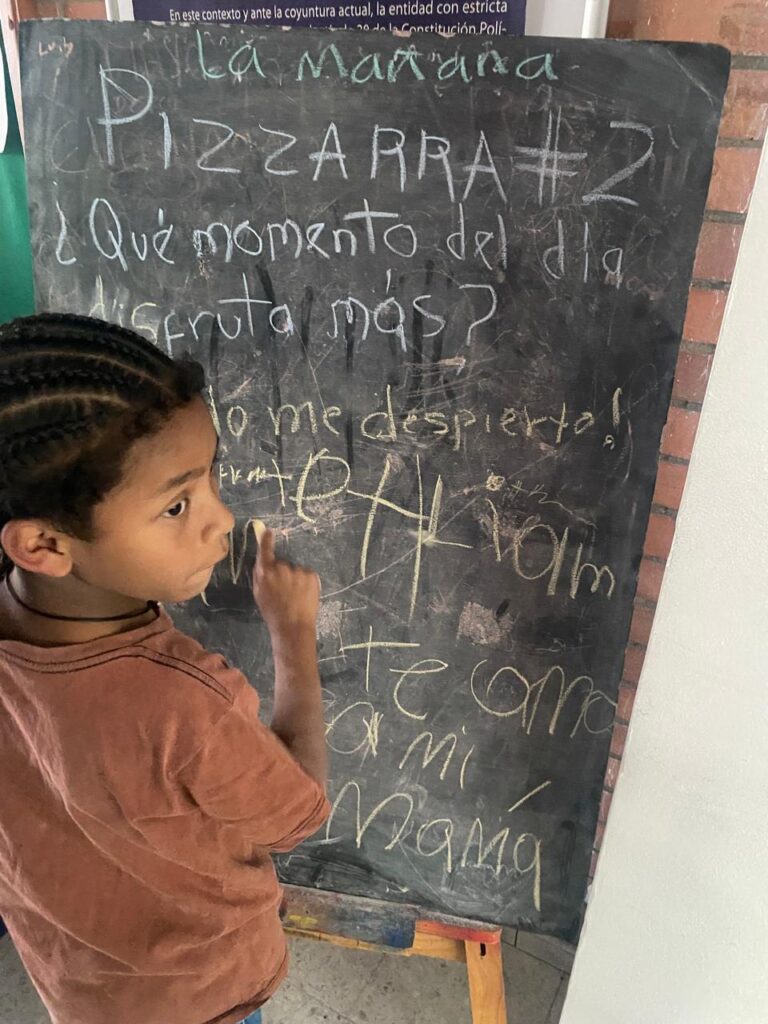 En este contexto y ante la coyuntura actual, la entidad con estricta
de la Constitución Polí-
Luly
La mañana
PIZZARRA #2
¿Qué momento del día
disfruta más?
me despierto!
te
te amo
a mi
Mamá